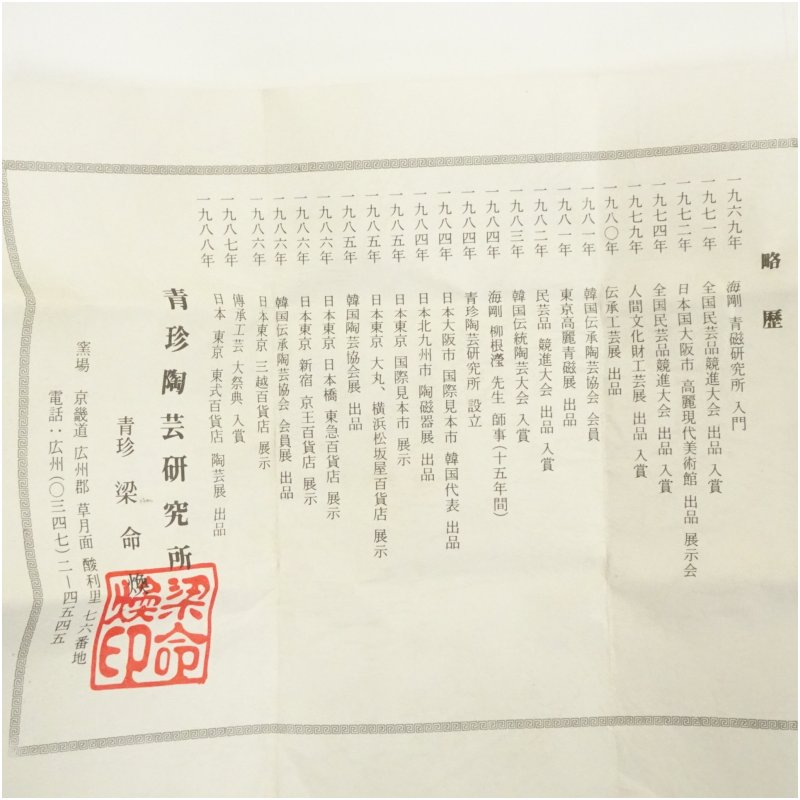 略歴
一九六九年 海剛 青磁研究所 入門
一九七一年 全国民芸品競進大会 出品 入賞
一九七二年 日本国大阪市 高麗現代美術館 出品 展示会
一九七四年 全国民芸品競進大会 出品 入賞
一九七九年 人間文化財工芸展 出品 入賞
一九八〇年 伝承工芸展 出品
一九八一年 韓国伝承陶芸協会 会員
一九八一年 東京高麗青磁展 出品
一九八二年 民芸品 競進大会 出品 入賞
一九八三年 韓国伝統陶芸大会 入賞
一九八四年 海剛 柳根瀅 先生 師事(十五年間)
一九八四年 青珍陶芸研究所 設立
一九八四年 日本大阪市 国際見本市 韓国代表 出品
一九八四年 日本北九州市 陶磁器展 出品
一九八五年 日本東京 国際見本市 展示
一九八五年 日本東京 大丸、横浜松坂屋百貨店 展示
一九八五年 韓国陶芸協会展 出品
一九八六年 日本東京 日本橋 東急百貨店 展示
一九八六年 日本東京 新宿 京王百貨店 展示
一九八六年 韓国伝承陶芸協会 会員展 出品
一九八六年 日本東京 三越百貨店 展示
一九八七年 傳承工芸 大祭典 入賞
一九八八年 日本 東京 東武百貨店 陶芸展 出品
青珍陶芸研究所
青珍 梁命煥
窯場 京畿道 広州郡 草月面 酸利里 七六番地
電話:広州(〇三四七)二ー四五四五
梁命煥印